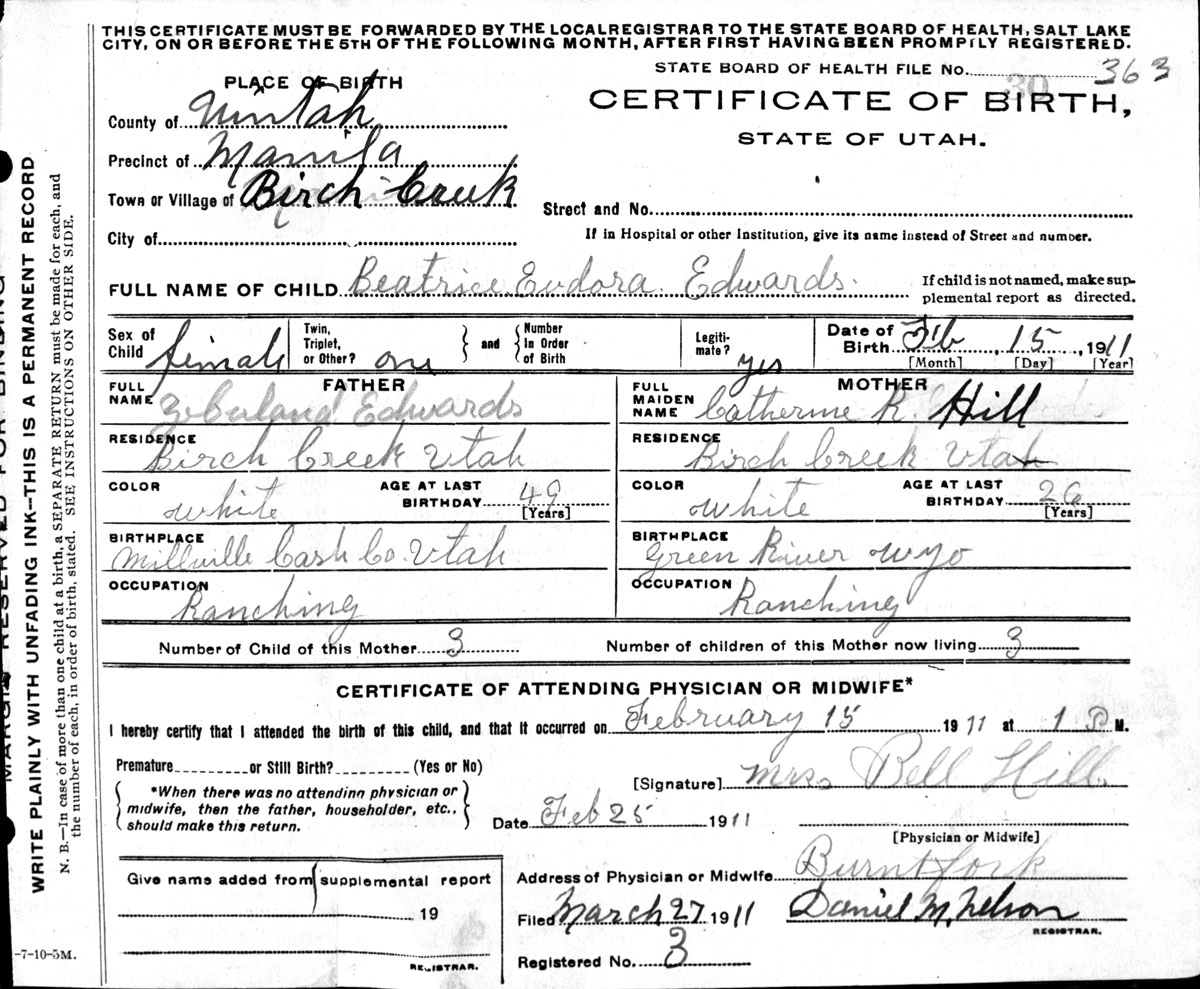 THIS CERTIFICATE MUST BE FORWARDED BY THE LOCAL REGISTRAR TO THE STATE BOARD OF HEALTH, SALT LAKE
CITY, ON OR BEFORE THE 5TH OF THE FOLLOWING MONTH, AFTER FIRST HAVING BEEN PROMPTLY REGISTERED.
STATE BOARD OF HEALTH FILE No. 363
30
PLACE OF BIRTH
CERTIFICATE OF BIRTH,
STATE OF UTAH.
County of Uintah
Precinct of Manila
Town or Village of Birch Creek
Street and No.
City of
If in Hospital or other Institution, give its name instead of Street and number.
FULL NAME OF CHILD Beatrice Eudora Edwards.
If child is not named, make sup-
plemental report as directed.
Sex of Child female
Twin, Triplet, or Other? one
and
Number In Order of Birth
Legiti-mate? yes
Date of Birth Feb, 15, 1911
[Month] [Day] [Year]
FATHER
FULL NAME Edwards
RESIDENCE Birch Creek Utah
COLOR white
AGE AT LAST BIRTHDAY 49 [Years]
BIRTHPLACE Millville Cash Co. Utah
OCCUPATION Ranching
MOTHER
FULL MAIDEN NAME Catherine R. Hill
RESIDENCE Birch Creek Utah
COLOR white
AGE AT LAST BIRTHDAY 26 [Years]
BIRTHPLACE Green River Wyo
OCCUPATION Ranching
Number of Child of this Mother 3
Number of children of this Mother now living 3
CERTIFICATE OF ATTENDING PHYSICIAN OR MIDWIFE*
I hereby certify that I attended the birth of this child, and that it occurred on February 15 1911 at 1 P M.
Premature or Still Birth? (Yes or No)
[Signature] Mrs Bell Hill
*When there was no attending physician or
midwife, then the father, householder, etc.,
should make this return.
Date Feb 25 1911
[Physician or Midwife]
Give name added from supplemental report
19
REGISTRAR.
Address of Physician or Midwife Burntfork
Filed March 27 1911 Daniel M. Nelson
REGISTRAR.
Registered No. 3
-7-10-5M.
MARGIN RESERVED FOR BINDING
WRITE PLAINLY WITH UNFADING INK—THIS IS A PERMANENT RECORD
N. B.—In case of more than one child at a birth, a SEPARATE RETURN must be made for each, and
the number of each, in order of birth, stated. SEE INSTRUCTIONS ON OTHER SIDE.